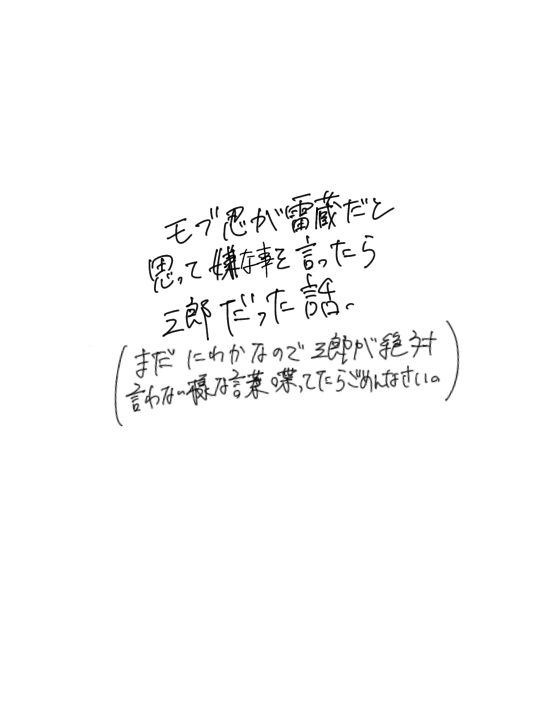 モブ忍が雷蔵だと
思って嫌な事を言ったら
三郎だった話。
(まだにわかなので三郎が絶対
言わない様な言葉喋ってたらごめんなさい。)